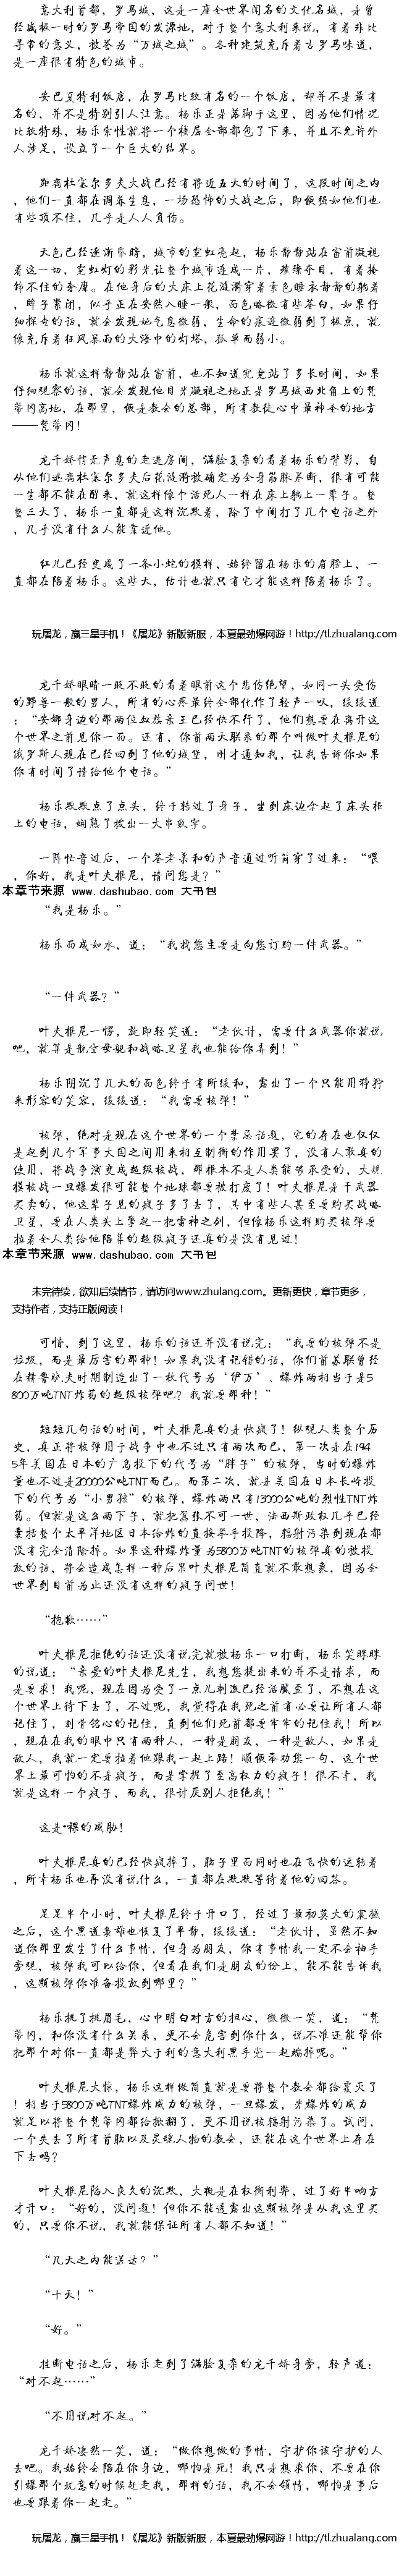 意大利首都，罗马城，这是一座全世界闻名的文化名城，是曾
经盛极一时的罗马帝国的发源地，对于整个意大利来说，有着非比
寻常的意义，被签为“万城之城”。各种建筑充斥着古罗马味道，
是一座很有特色的城市。
安巴夏特利饭店，在罗马比较有名的一个饭店，却并不是最有
名的，并不是特别引人注意。杨乐正是落脚于这里，因为他们情况
比较特殊，杨乐索性就将一个楼层全部都包了下来，并且不允许外
人涉足，设立了一个巨大的结界。
距离杜塞尔多夫大战已经有将近五天的时间了，这段时间之内
，他们一直都在调养生息，一场恐怖的大战之后，即便强如他们也
有些顶不住，几乎是人人负伤。
天色已经逐渐昏暗，城市的霓虹亮起，杨乐静静站在窗前凝视
着这一切，霓虹灯的彩光让整个城市连成一片，璀璨夺目，有着掩
饰不住的奢靡。在他身后的大床上花涟漪穿着素色睡衣静静的躺着
，眸子紧闭，似乎正在安然入睡一般，而色略微有些苍白，如果仔
细探查的话，就会发现她气息微弱，生命的痕迹微弱到了极点，就
像充斥着狂风暴雨的大海中的灯塔，孤单而弱小。
杨乐就这样静静站在窗前，也不知道究竟站了多长时间，如果
仔细观察的话，就会发现他目光凝视之地正是罗马城西北角上的梵
蒂冈高地，在那里，便是教会的总部，所有教徒心中最神圣的地方
——梵蒂冈！
龙千娇悄无声息的走进房间，满脸复杂的看着杨乐的背影，自
从他们逃离杜塞尔多夫后花涟漪被确定为全身筋脉尽断，很有可能
一生都不能在醒来，就这样像个活死人一样在床上躺上一辈子。整
整三天了，杨乐一直都是这样沉默着，除了中间打了几个电话之外
，几乎没有什么人能靠近他。
红儿已经变成了一条小蛇的模样，始终留在杨乐的肩膀上，一
直都在陪着杨乐。这些天，估计也就只有它才能这样陪着杨乐了。
玩屠龙，赢三星手机！《屠龙》新版新服，本夏最劲爆网游！http://tl.zhualang.com
龙千娇眼睛一眨不眨的看着眼前这个悲伤绝望，如同一头受伤
的野兽一般的男人，所有的心疼最终全部化作了轻声一叹，缓缓道
：“安娜身边的那两位血族亲王已经快不行了，他们想要在离开这
个世界之前见你一面。还有，你前两天联系的那个叫做叶夫根尼的
俄罗斯人现在已经回到了他的城堡，刚才通知我，让我告诉你如果
你有时间了请给他个电话。”
杨乐默默点了点头，终于转过了身子，坐到床边拿起了床头柜
上的电话，娴熟了拨出一大串数字。
一阵忙音过后，一个苍老亲和的声音通过听筒穿了过来：“喂
，你好，我是叶夫根尼，请问您是？”
本章节来源 www.dashubao.com 大书包
“我是杨乐。”
杨乐面成如水，道：“我找您主要是向您订购一件武器。”
“一件武器？”
叶夫根尼一愣，旋即轻笑道：“老伙计，需要什么武器你就说
吧，就算是航空母舰和战略卫星我也能给你弄到！”
杨乐阴沉了几天的面色终于有所缓和，露出了一个只能用狰狞
来形容的笑容，缓缓道：“我需要核弹！”
核弹，绝对是现在这个世界的一个禁忌话题，它的存在也仅仅
是起到几个军事大国之间用来相互制衡的作用罢了，没有人敢真的
使用，将战争演变成超级核战，那根本不是人类能够承受的，大规
模核战一旦爆发很可能整个地球都要被打废了！叶夫根尼是干武器
买卖的，他这辈子见的疯子多了去了，其中有些人甚至要购买战略
卫星，要在人类头上擎起一把雷神之剑，但像杨乐这样购买核弹要
拉着全人类给他陪葬的超级疯子还真的是没有见过！
本章节来源 www.dashubao.com 大书包
未完待续，欲知后续情节，请访问www.zhulang.com。更新更快，章节更多，
支持作者，支持正版阅读！
可惜，到了这里，杨乐的话还并没有说完：“我要的核弹不是
垃圾，而是最厉害的那种！如果我没有记错的话，你们前苏联曾经
在赫鲁晓夫时期制造出了一枚代号为‘伊万’、爆炸两相当于是5
800万吨TNT炸药的超级核弹吧？我就要那种！”
短短几句话的时间，叶夫根尼真的是快疯了！纵观人类整个历
史，真正将核弹用于战争中也不过只有两次而已，第一次是在194
5年美国在日本的广岛投下的代号为“胖子”的核弹，当时的爆炸
量也不过是20000公吨TNT而已。而第二次，就是美国在日本长崎投
下的代号为“小男孩”的核弹，爆炸两只有13000公吨的烈性TNT炸
药。但就是这么两下子，就把嚣张不可一世，法西斯政权几乎已经
囊括整个太平洋地区日本给炸的直接举手投降，辐射污染到现在都
没有完全清除掉。如果这种爆炸量为5800万吨TNT的核弹真的被投
放的话，将会造成怎样一种后果叶夫根尼简直就不敢想象，因为全
世界到目前为止还没有这样的疯子问世！
“抱歉……”
叶夫根尼拒绝的话还没有说完就被杨乐一口打断，杨乐笑眯眯
的说道：“亲爱的叶夫根尼先生，我想您提出来的并不是请求，而
是要求！我呢，现在因为受了一点儿刺激已经活腻歪了，不想在这
个世界上待下去了，不过呢，我觉得在我死之前有必要让所有人都
记住了，刻骨铭心的记住，直到他们死首都要牢牢的记住我！所以
，现在在我的眼中只有两种人，一种是朋友，一种是敌人，如果是
敌人，我就一定要拉着他跟我一起上路！顺便奉劝您一句，这个世
界上最可怕的不是疯子，而是掌握了至高权力的疯子！很不幸，我
就是这样一个疯子，而我，很讨厌别人拒绝我！”
这是*裸的威胁！
叶夫根尼真的已经快疯掉了，脑子里面同时也在飞快的运转着
，所幸杨乐也再没有说什么，一直都在默默等待着他的回答。
足足半个小时，叶夫根尼终于开口了，经过了最初莫大的震撼
之后，这个黑道枭雄也恢复了平静，缓缓道：“老伙计，虽然不知
道你那里发生了什么事情，但身为朋友，你有事情我一定不会袖手
旁观，核弹我可以给你，但看在我们是朋友的份上，能不能告诉我
，这颗核弹你准备投放到哪里？”
杨乐挑了挑眉毛，心中明白对方的担心，微微一笑，道：“梵
蒂冈，和你没有什么关系，更不会危害到你什么，说不准还能帮你
把那个对你一直都是弊大于利的意大利黑手党一起端掉呢。”
叶夫根尼大惊，杨乐这样做简直就是要将整个教会都给震灭了
！相当于5800万吨TNT爆炸威力的核弹，一旦爆发，光爆炸的威力
就足以将整个梵蒂冈都给掀翻了，更不用说核辐射污染了。试问，
一个失去了所有首脑以及灵魂人物的教会，还能在这个世界上存在
下去吗？
叶夫根尼陷入良久的沉默，大概是在权衡利弊，过了好半响方
才开口：“好的，没问题！但你不能透露出这颗核弹是从我这里买
的，只要你不说，我就能保证所有人都不知道！”
“几天之内能送达？”
“十天！”
“好。”
挂断电话之后，杨乐走到了满脸复杂的龙千娇身旁，轻声道：
“对不起……”
“不用说对不起。”
龙千娇凄然一笑，道：“做你想做的事情，守护你该守护的人
去吧。我始终会陪在你身边，哪怕是死！我只是想求你，不要在你
引爆那个玩意的时候赶走我，那样的话，我不会领情，哪怕是事后
也要跟着你一起走。”
玩屠龙，赢三星手机！《屠龙》新版新服，本夏最劲爆网游！http://tl.zhualang.com